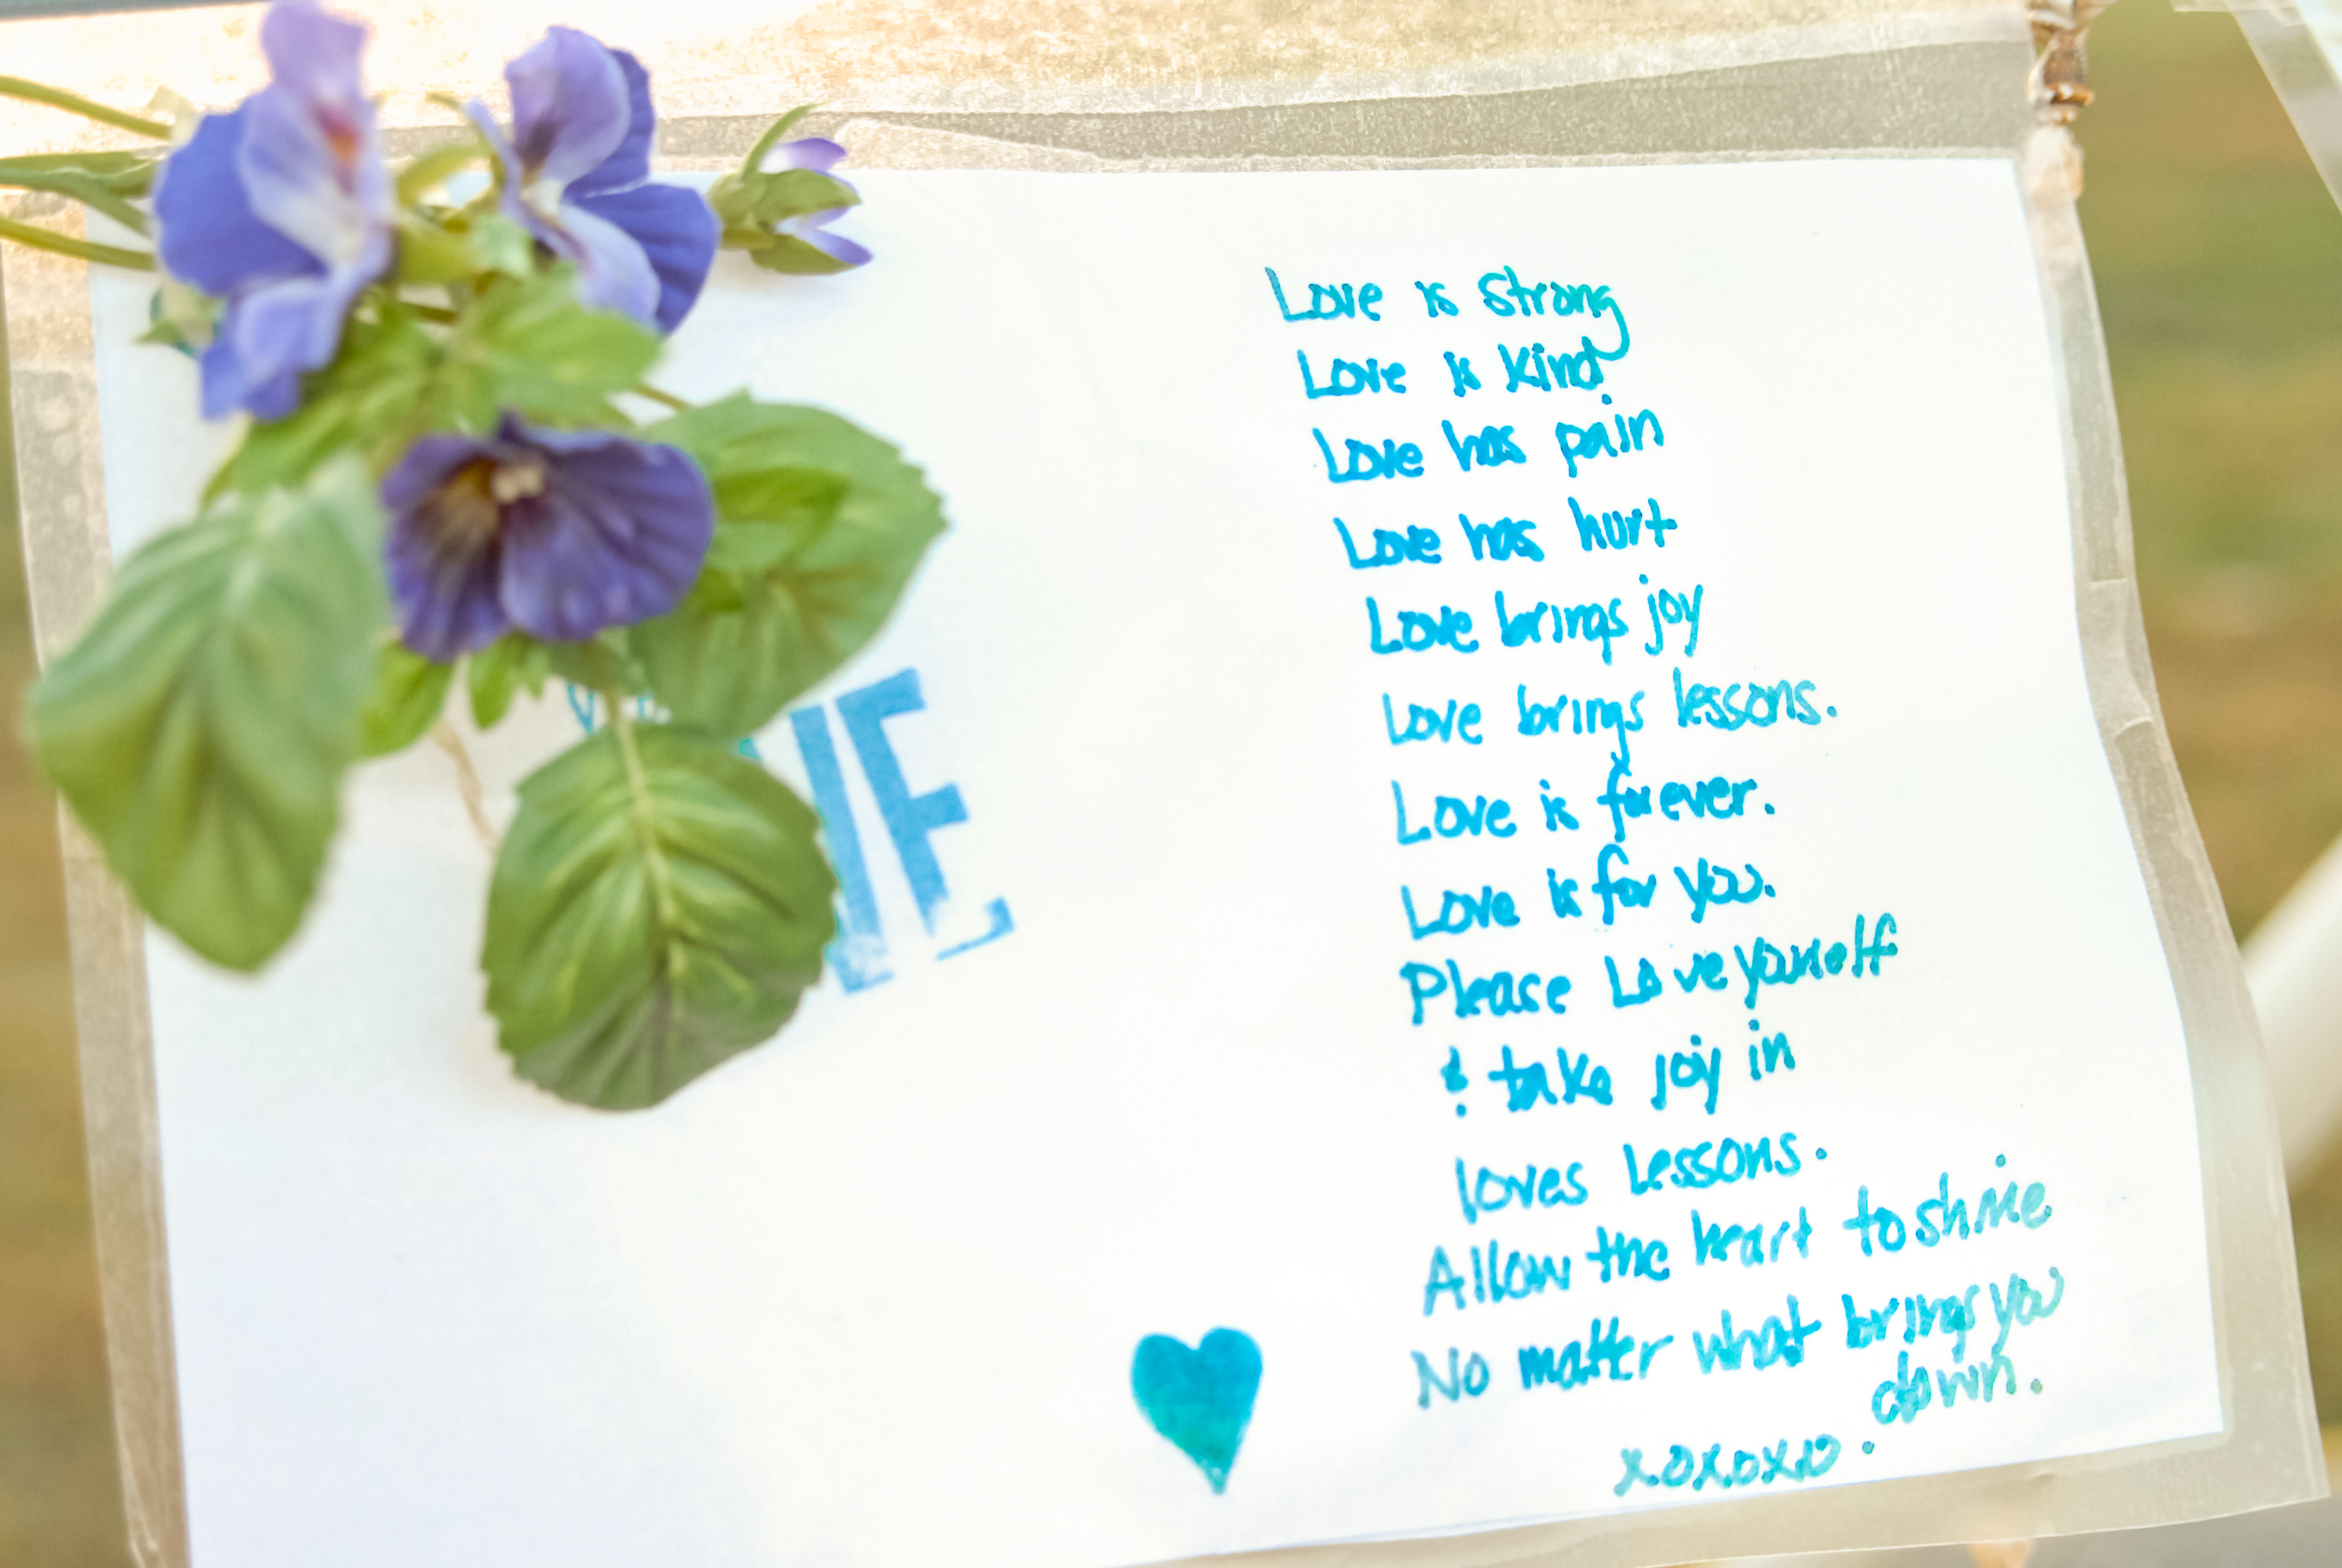 Love is strong
Love is kind
Love has pain
Love has hurt
Love brings joy
Love brings lessons.
Love is forever.
Love is for you.
Please Love yourself
& take joy in
loves lessons.
Allow the heart to shine
No matter what brings you
down.
xoxoxo.